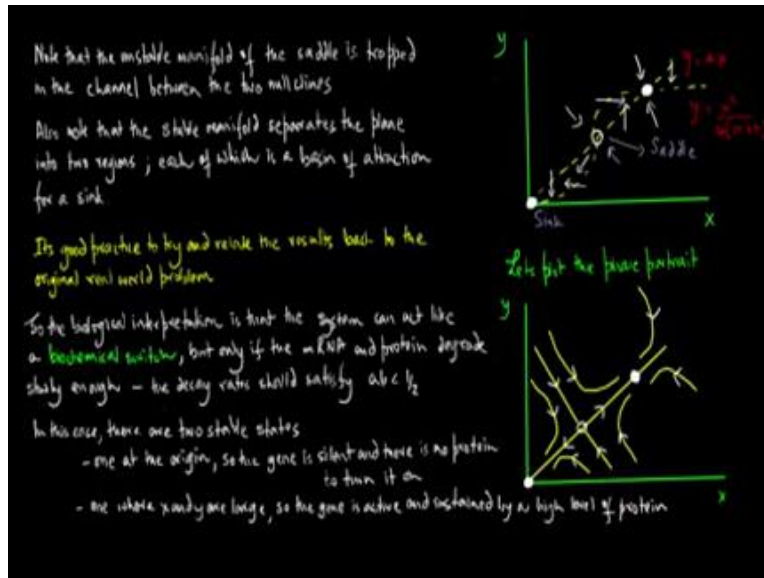 Note that the unstable manifold of the saddle is trapped
in the channel between the two nullclines
Also note that the stable manifold separates the plane
into two regions ; each of which is a basin of attraction
for a sink
Its good practice to try and relate the results back to the
original real world problem
So the biological interpretation is that the system can act like
a biochemical switch, but only if the mRNA and protein degrade
slowly enough – the decay rates should satisfy ab < 1/2
In this case, there are two stable states
- one at the origin, so the gene is silent and there is no protein
to turn it on
- one where x and y are large, so the gene is active and sustained by a high level of protein
y
y = ax
y =
Saddle
Sink
x
Lets plot the phase portrait
y
x